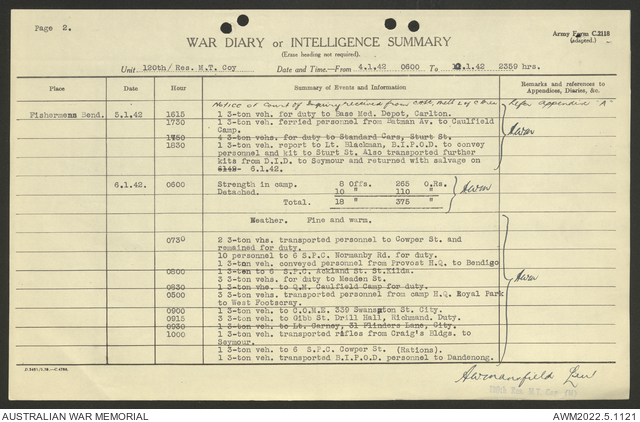 Page 2.
Army Form C.2118
(adapted.)
WAR DIARY or INTELLIGENCE SUMMARY
(Erase heading not required).
Unit 120th/ Res. M.T. Coy Date and Time—From 4.1.42 0600 To 1.42 2359 hrs.
Place Date Hour Summary of Events and Information Remarks and references to
Appendices, Diaries, &c.
Notice of Court of Inquiry received from Refer appendix "A"
Fishermens Bend. 5.1.42 1615 1 3-ton veh. for duty to Base Med. Depot, Carlton.
1730 1 3-ton veh. ferried personnel from Batman Av. to Caulfield
Camp.
1750 4 3-ton vehs. for duty to Standard Cars, Sturt St.
1830 1 3-ton veh. report to Lt. Blackman, B.I.P.O.D. to convey
personnel and kit to Sturt St. Also transported further
kits from D.I.D. to Seymour and returned with salvage on
6.1.42.
6.1.42. 0600 Strength in camp. 8 Offs. 265 O.Rs.
Detached. 10 " 110 "
Total. 18 " 375 "
Weather. Fine and warm.
0730 2 3-ton vhs. transported personnel to Cowper St. and
remained for duty.
10 personnel to 6 S.P.C. Normanby Rd. for duty.
1 3-ton veh. conveyed personnel from Provost H.Q. to Bendigo
0800 1 3-ton to 6 S.P.C. Ackland St. St.Kilda.
3 3-ton vehs. for duty to Meaden St.
0830 1 3-ton vhe. to Q.M. Caulfield Camp for duty.
0500 3 3-ton vehs. transported personnel from camp H.Q. Royal Park
to West Footscray.
0900 1 3-ton veh. to C.O.M.E. 339 Swanston St. City.
0915 3 3-ton veh. to Gibb St. Drill Hall, Richmand. Duty.
0930 1 3-ton veh. to Lt. Garney, 31 Flinders Lane, City.
1000 1 3-ton veh. transported rifles from Craig's Bldgs. to
Seymour.
1 3-ton veh. to 6 S.P.C. Cowper St. (Rations).
1 3-ton veh. transported B.I.P.O.D. personnel to Dandenong.
AWMansfield Lieu
AUSTRALIAN WAR MEMORIAL
AWM2022.5.1121